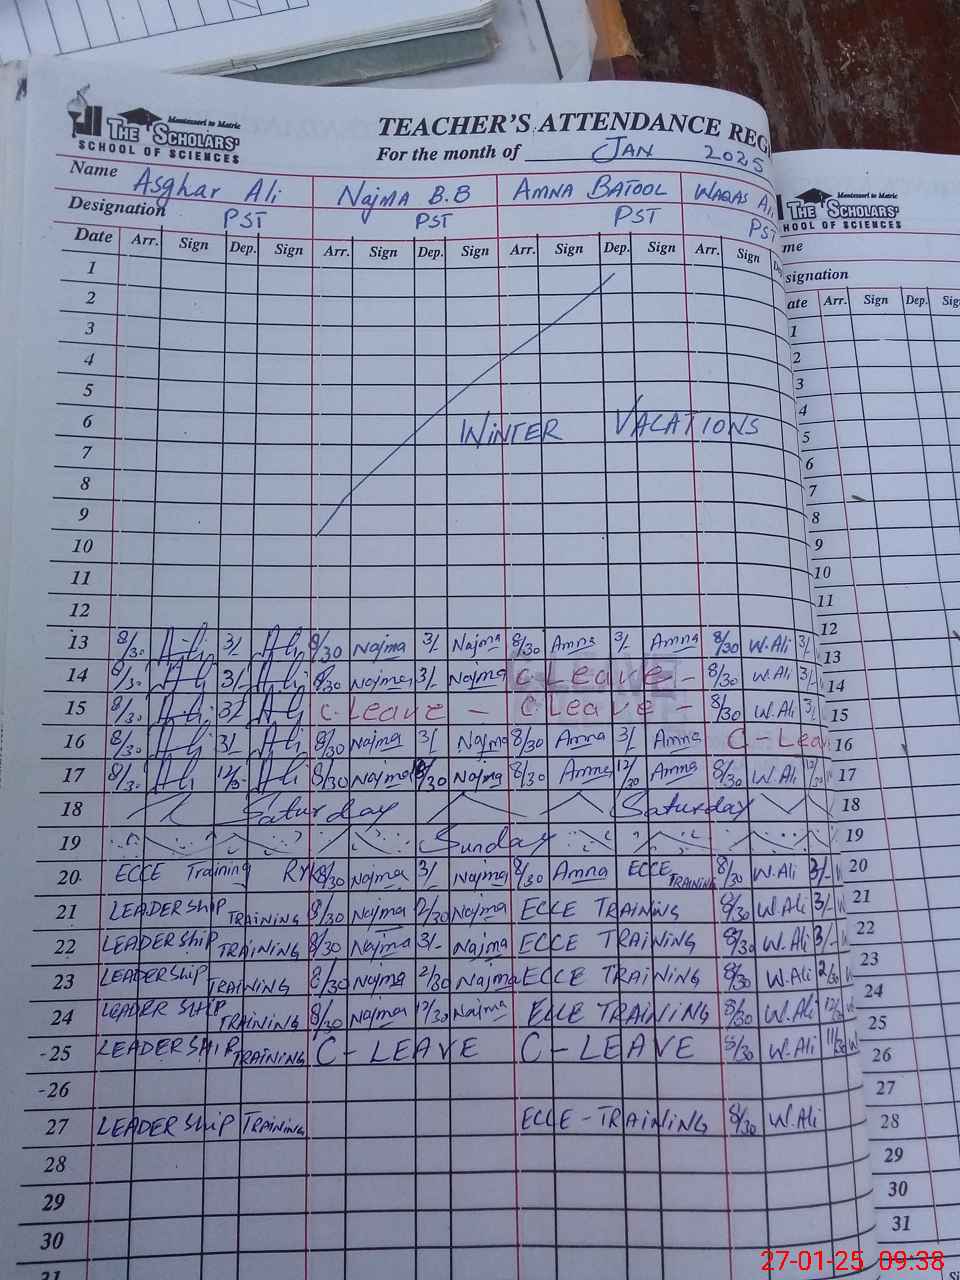 Montessori to Matric
THE SCHOLARS'
SCHOOL OF SCIENCES
TEACHER'S ATTENDANCE REG
For the month of JAN 2025
Name Asghar Ali Najma B.B AMNA BATOOL WAQAS Ali
Designation PST PST PST PST
Date Arr. Sign Dep. Sign Arr. Sign Dep. Sign Arr. Sign Dep. Sign Arr. Sign
1
2
3
4
5
6 WINTER VACATIONS
7
8
9
10
11
12
13 8/30 Ali 3/- Ali 8/30 Najma 3/- Najma 8/30 Amna 3/- Amna 8/30 W.Ali 3/-
14 8/30 Ali 3/- Ali 8/30 Najma 3/- Najma C Leave - 8/30 W.Ali 3/-
15 8/30 Ali 3/- Ali C Leave - C Leave - 8/30 W.Ali 3/-
16 8/30 Ali 3/- Ali 8/30 Najma 3/- Najma 8/30 Amna 3/- Amna C-Lea
17 8/30 Ali Ali 8/30 Najma Najma 8/30 Amna 12/30 Amna 8/30 W.Ali 12/30
18 Saturday Saturday
19 Sunday
20 ECCE Training RYK 8/30 Najma 3/- Najma 8/30 Amna ECCE TRAINING 8/30 W.Ali 3/-
21 LEADERSHIP TRAINING 8/30 Najma 2/30 Najma ECCE TRAINING 8/30 W.Ali 3/-
22 LEADERSHIP TRAINING 8/30 Najma 3/- Najma ECCE TRAINING 8/30 W.Ali 3/-
23 LEADERSHIP TRAINING 8/30 Najma 2/30 Najma ECCE TRAINING 8/30 W.Ali 2/30
24 LEADERSHIP TRAINING 8/30 Najma 12/30 Najma ECCE TRAINING 8/30 W.Ali 12/30
-25 LEADERSHIP TRAINING C-LEAVE C-LEAVE 8/30 W.Ali 11/30
-26
27 LEADERSHIP TRAINING ECCE-TRAINING 8/30 W.Ali
28
29
30
31
Montessori to Matric
THE SCHOLARS'
HOOL OF SCIENCES
me
signation
ate Arr. Sign Dep. Sig
1
2
3
4
5
6
7
8
9
10
11
12
13
14
15
16
17
18
19
20
21
22
23
24
25
26
27
28
29
30
31
27-01-25 09:38